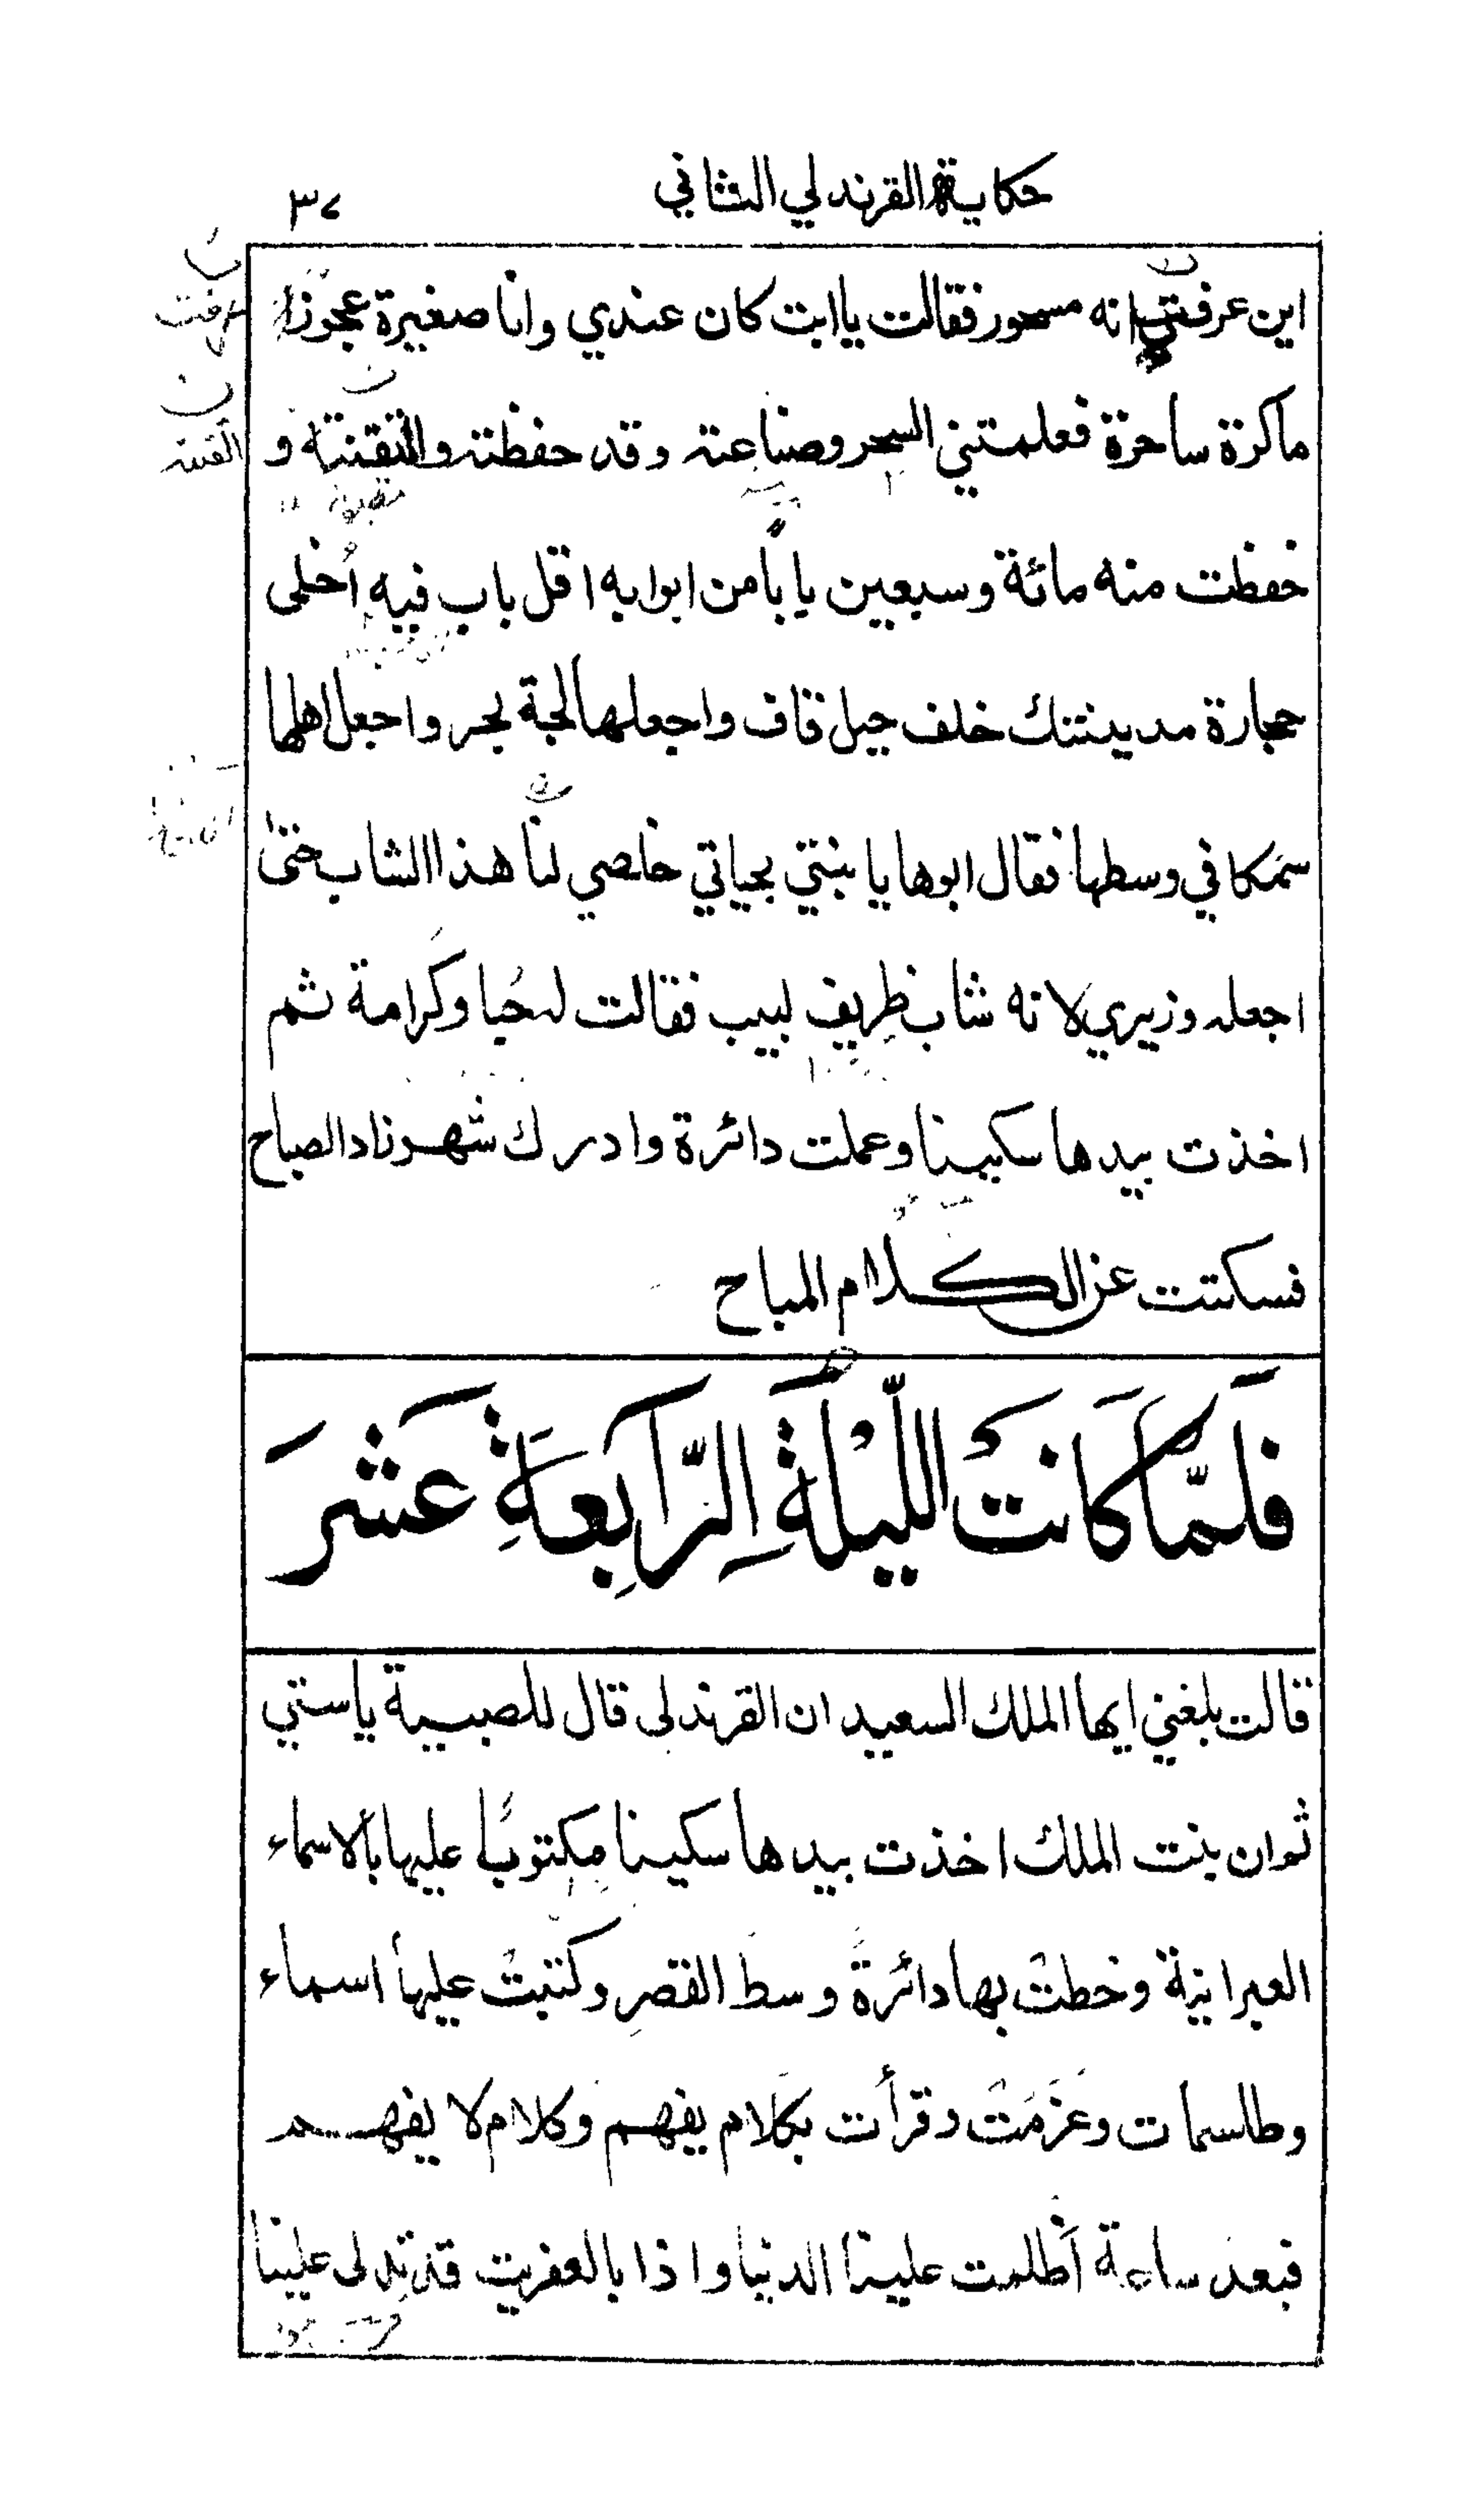 حكاية القرندلي الثاني
٣٧
اين عرفتي انه مسحور فقالت يا ابت كان عندي وانا صغيرة عجوزا
ماكرة ساحرة فعلمتني السحر وصناعته وقد حفظته واتقنته و
حفظت منه مائة وسبعين بابًا من ابوابه اقل باب فيه أخلى
حجارة مدينتك خلف جبل قاف واجعلها لجة بحر واجعل اهلها
سمكا في وسطها فقال ابوها يا بنتي بحياتي خلصي لنا هذا الشاب حتى
اجعله وزيري لانه شاب ظريف لبيب فقالت له حُبا وكَرامة ثم
اخذت بيدها سكينا وعملت دائرة وادرك شهرزاد الصباح
فسكتت عن الكلام المباح
فَلَمَّا كَانَتْ اللَّيْلَةِ الرَّابِعَةِ عَشَرَ
قالت بلغني ايها الملك السعيد ان القرندلى قال للصبية ياستي
ثم ان بنت الملك اخذت بيدها سكينا مكتوبًا عليها بالاسماء
العبرانية وخطتْ بها دائرةً وسط القصرِ وكتبتْ عليها اسماء
وطلسمات وعَزمَتْ وقرأَت بكَلام يفهم وكلام لا يفهم
فبعد ساعة أظلمت علينا الدنيا واذا بالعفريت قد تدلى علينا